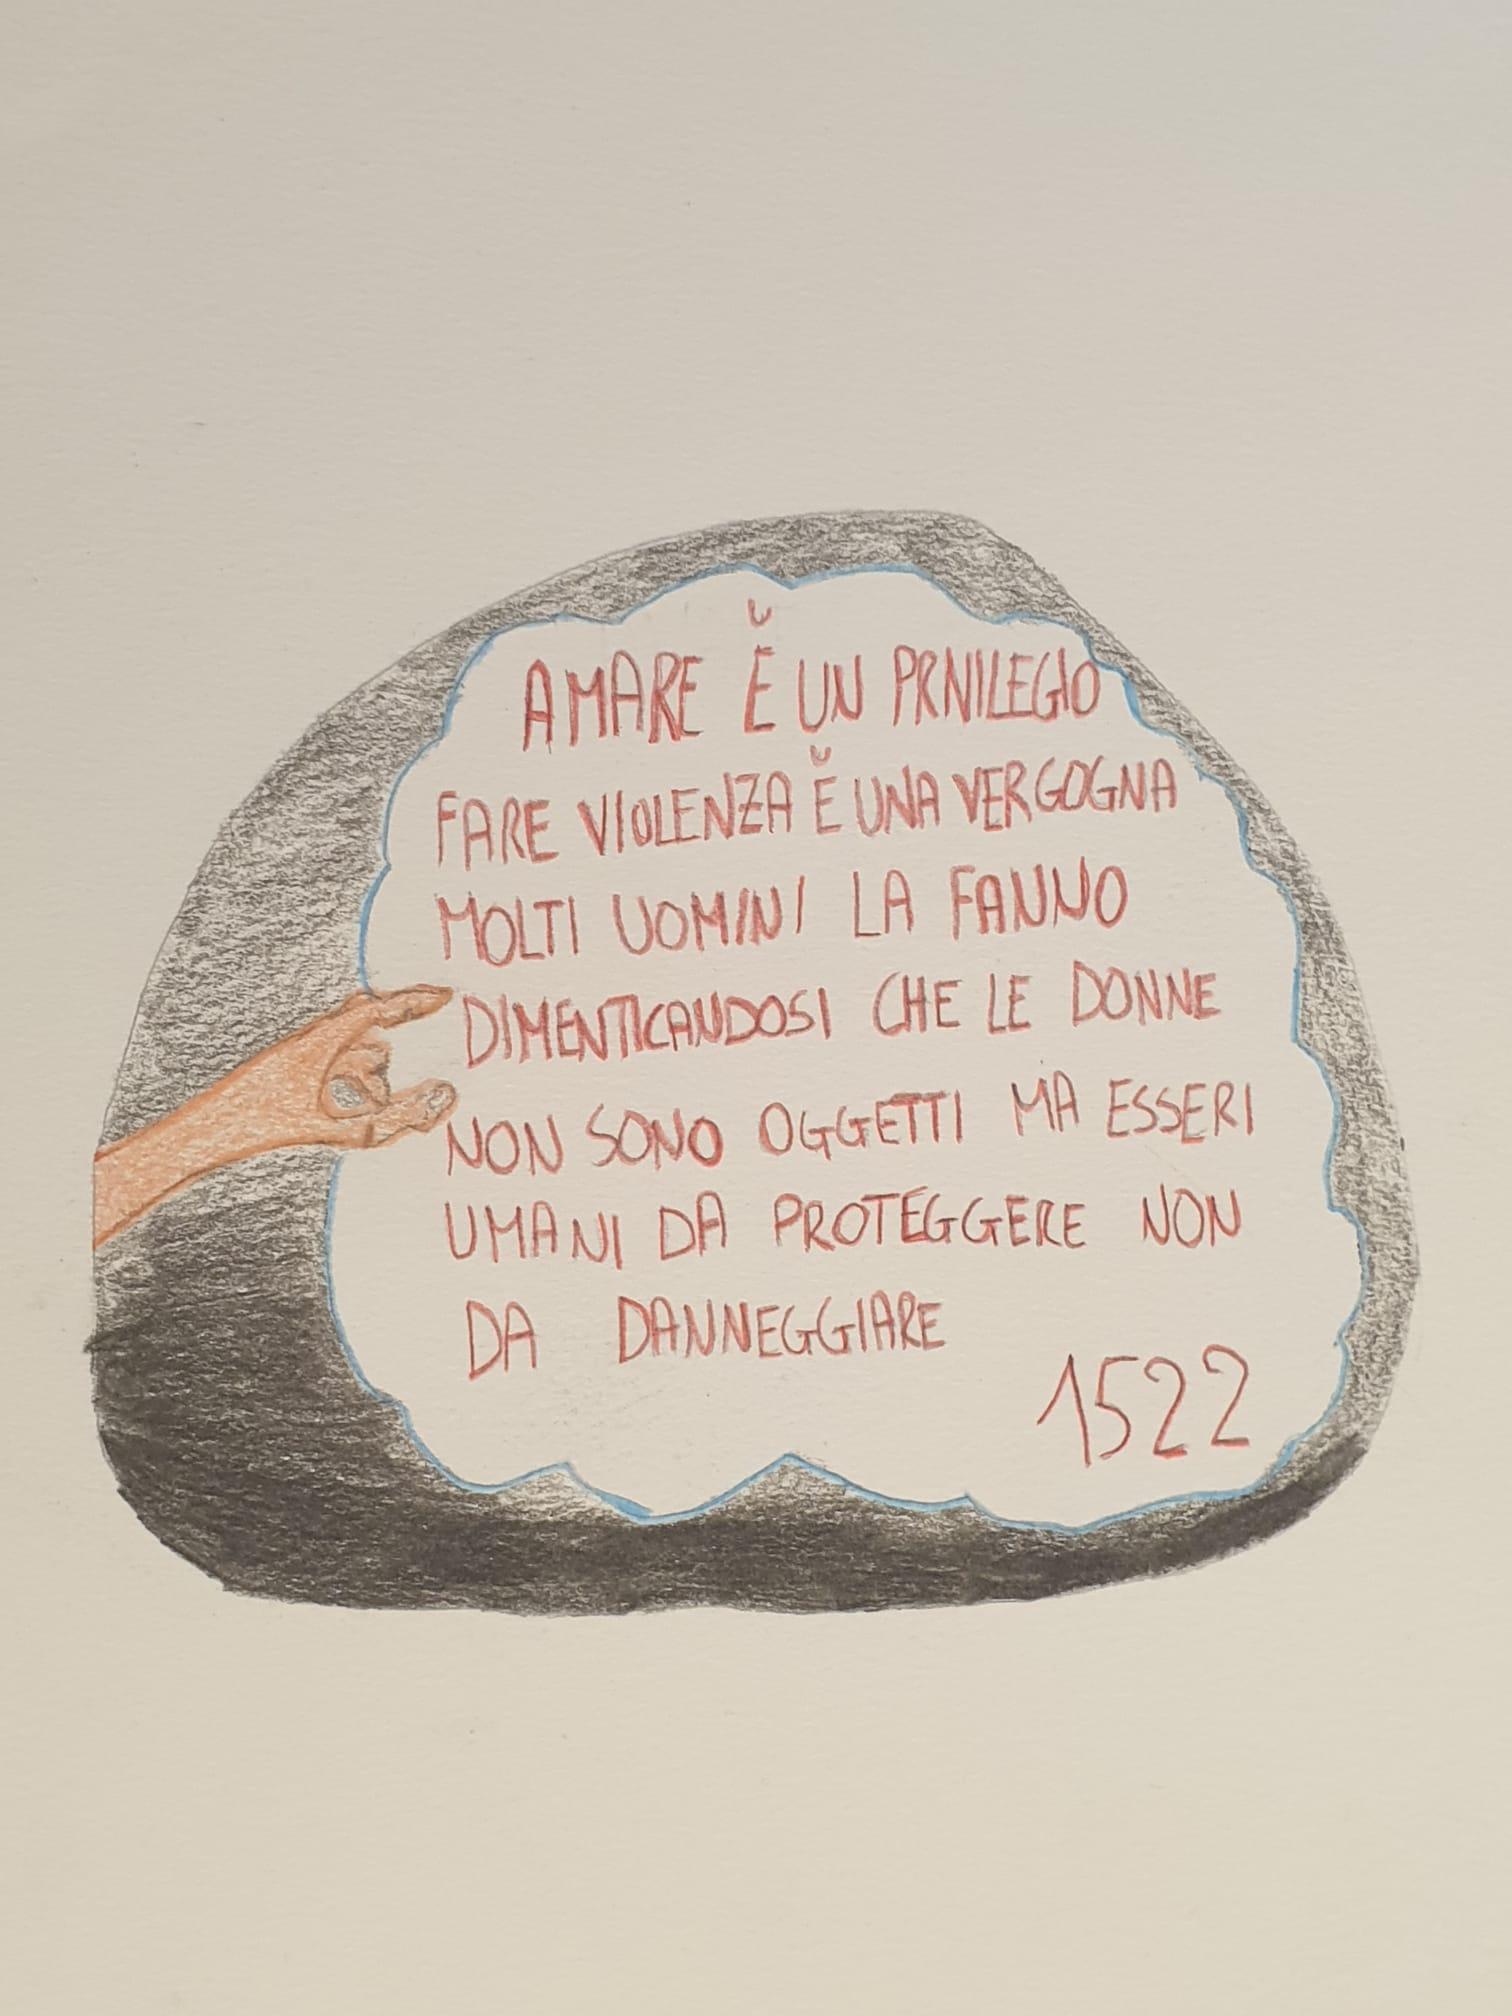 AMARE È UN PRIVILEGIO
FARE VIOLENZA È UNA VERGOGNA
MOLTI UOMINI LA FANNO
DIMENTICANDOSI CHE LE DONNE
NON SONO OGGETTI MA ESSERI
UMANI DA PROTEGGERE NON
DA DANNEGGIARE
1522